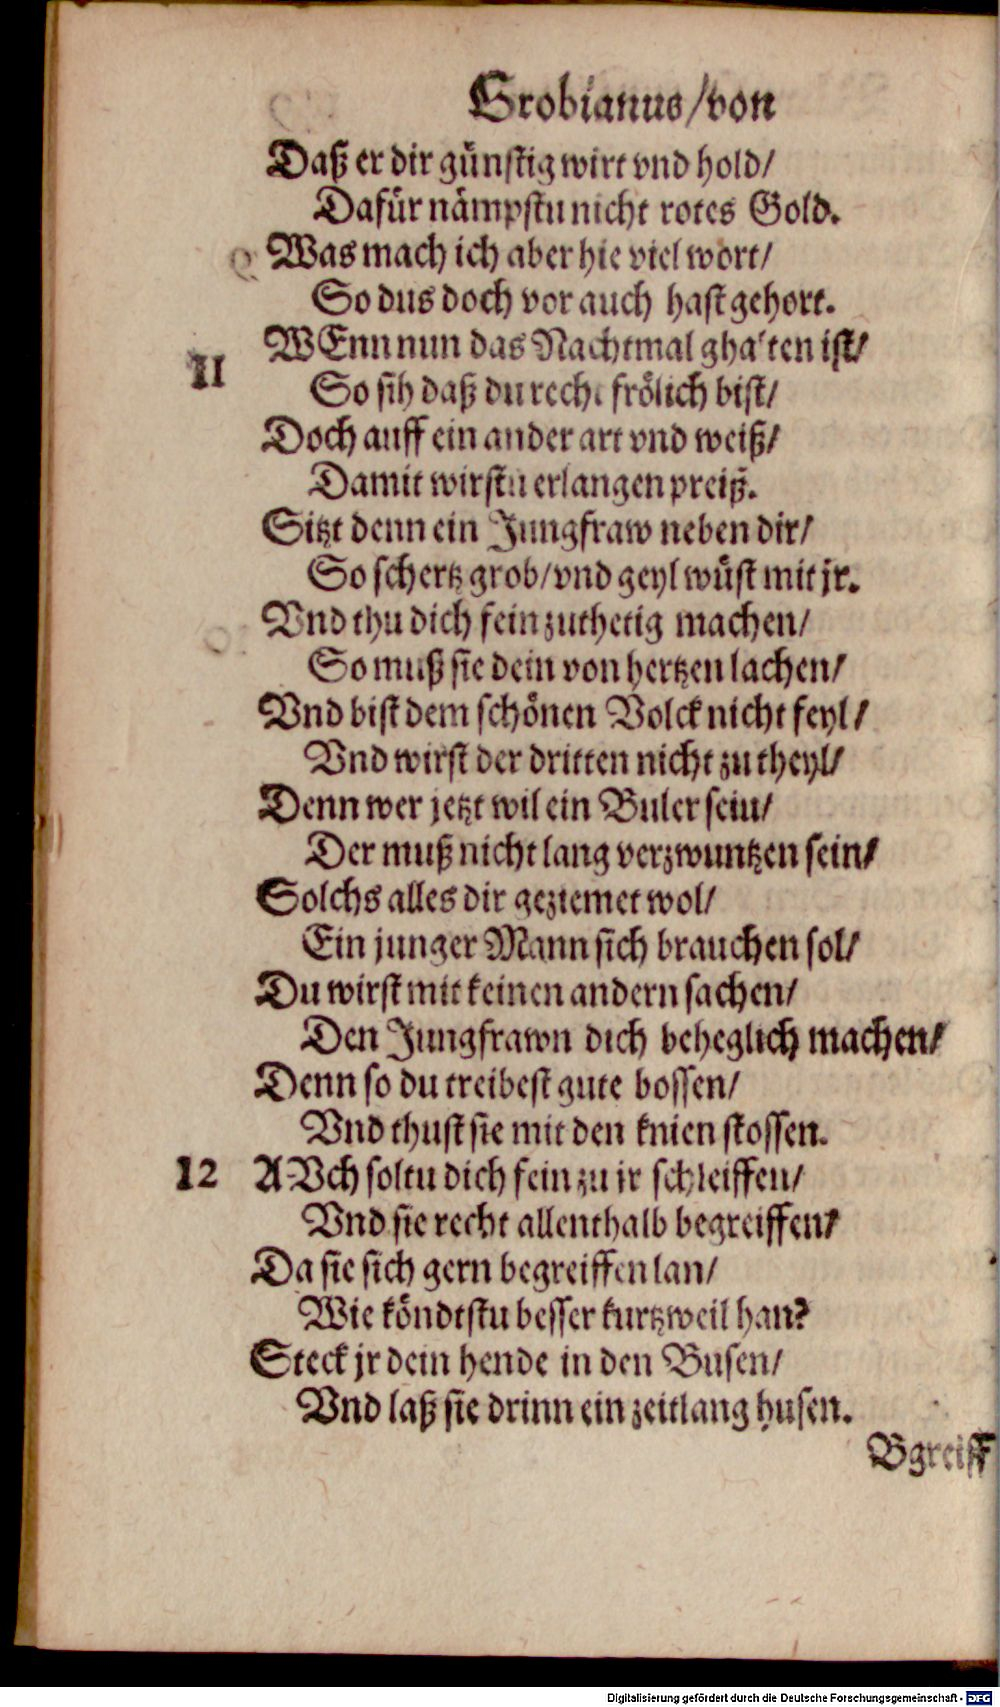 Grobianus/von
Daß er dir günstig wirt vnd hold/
Dafür nämpstu nicht rotes Gold.
Was mach ich aber hie viel wort/
So dus doch vor auch hast gehort.
11 WEnn nun das Nachtmal ghalten ist/
So sih daß du recht frölich bist/
Doch auff ein ander art vnd weiß/
Damit wirstu erlangen preiß.
Sitzt denn ein Jungfraw neben dir/
So schertz grob/vnd geyl wüst mit jr.
Vnd thu dich fein zuthetig machen/
So muß sie dein von hertzen lachen/
Vnd bist dem schönen Volck nicht feyl/
Vnd wirst der dritten nicht zu theyl/
Denn wer jetzt wil ein Buler sein/
Der muß nicht lang verzwuntzen sein/
Solchs alles dir geziemet wol/
Ein junger Mann sich brauchen sol/
Du wirst mit keinen andern sachen/
Den Jungfrawn dich beheglich machen/
Denn so du treibest gute bossen/
Vnd thust sie mit den knien stossen.
12 AVch soltu dich fein zu ir schleiffen/
Vnd sie recht allenthalb begreiffen/
Da sie sich gern begreiffen lan/
Wie köndtstu besser kurtzweil han?
Steck jr dein hende in den Busen/
Vnd laß sie drinn ein zeitlang husen.
Bgreiff
Digitalisierung gefördert durch die Deutsche Forschungsgemeinschaft - DFG